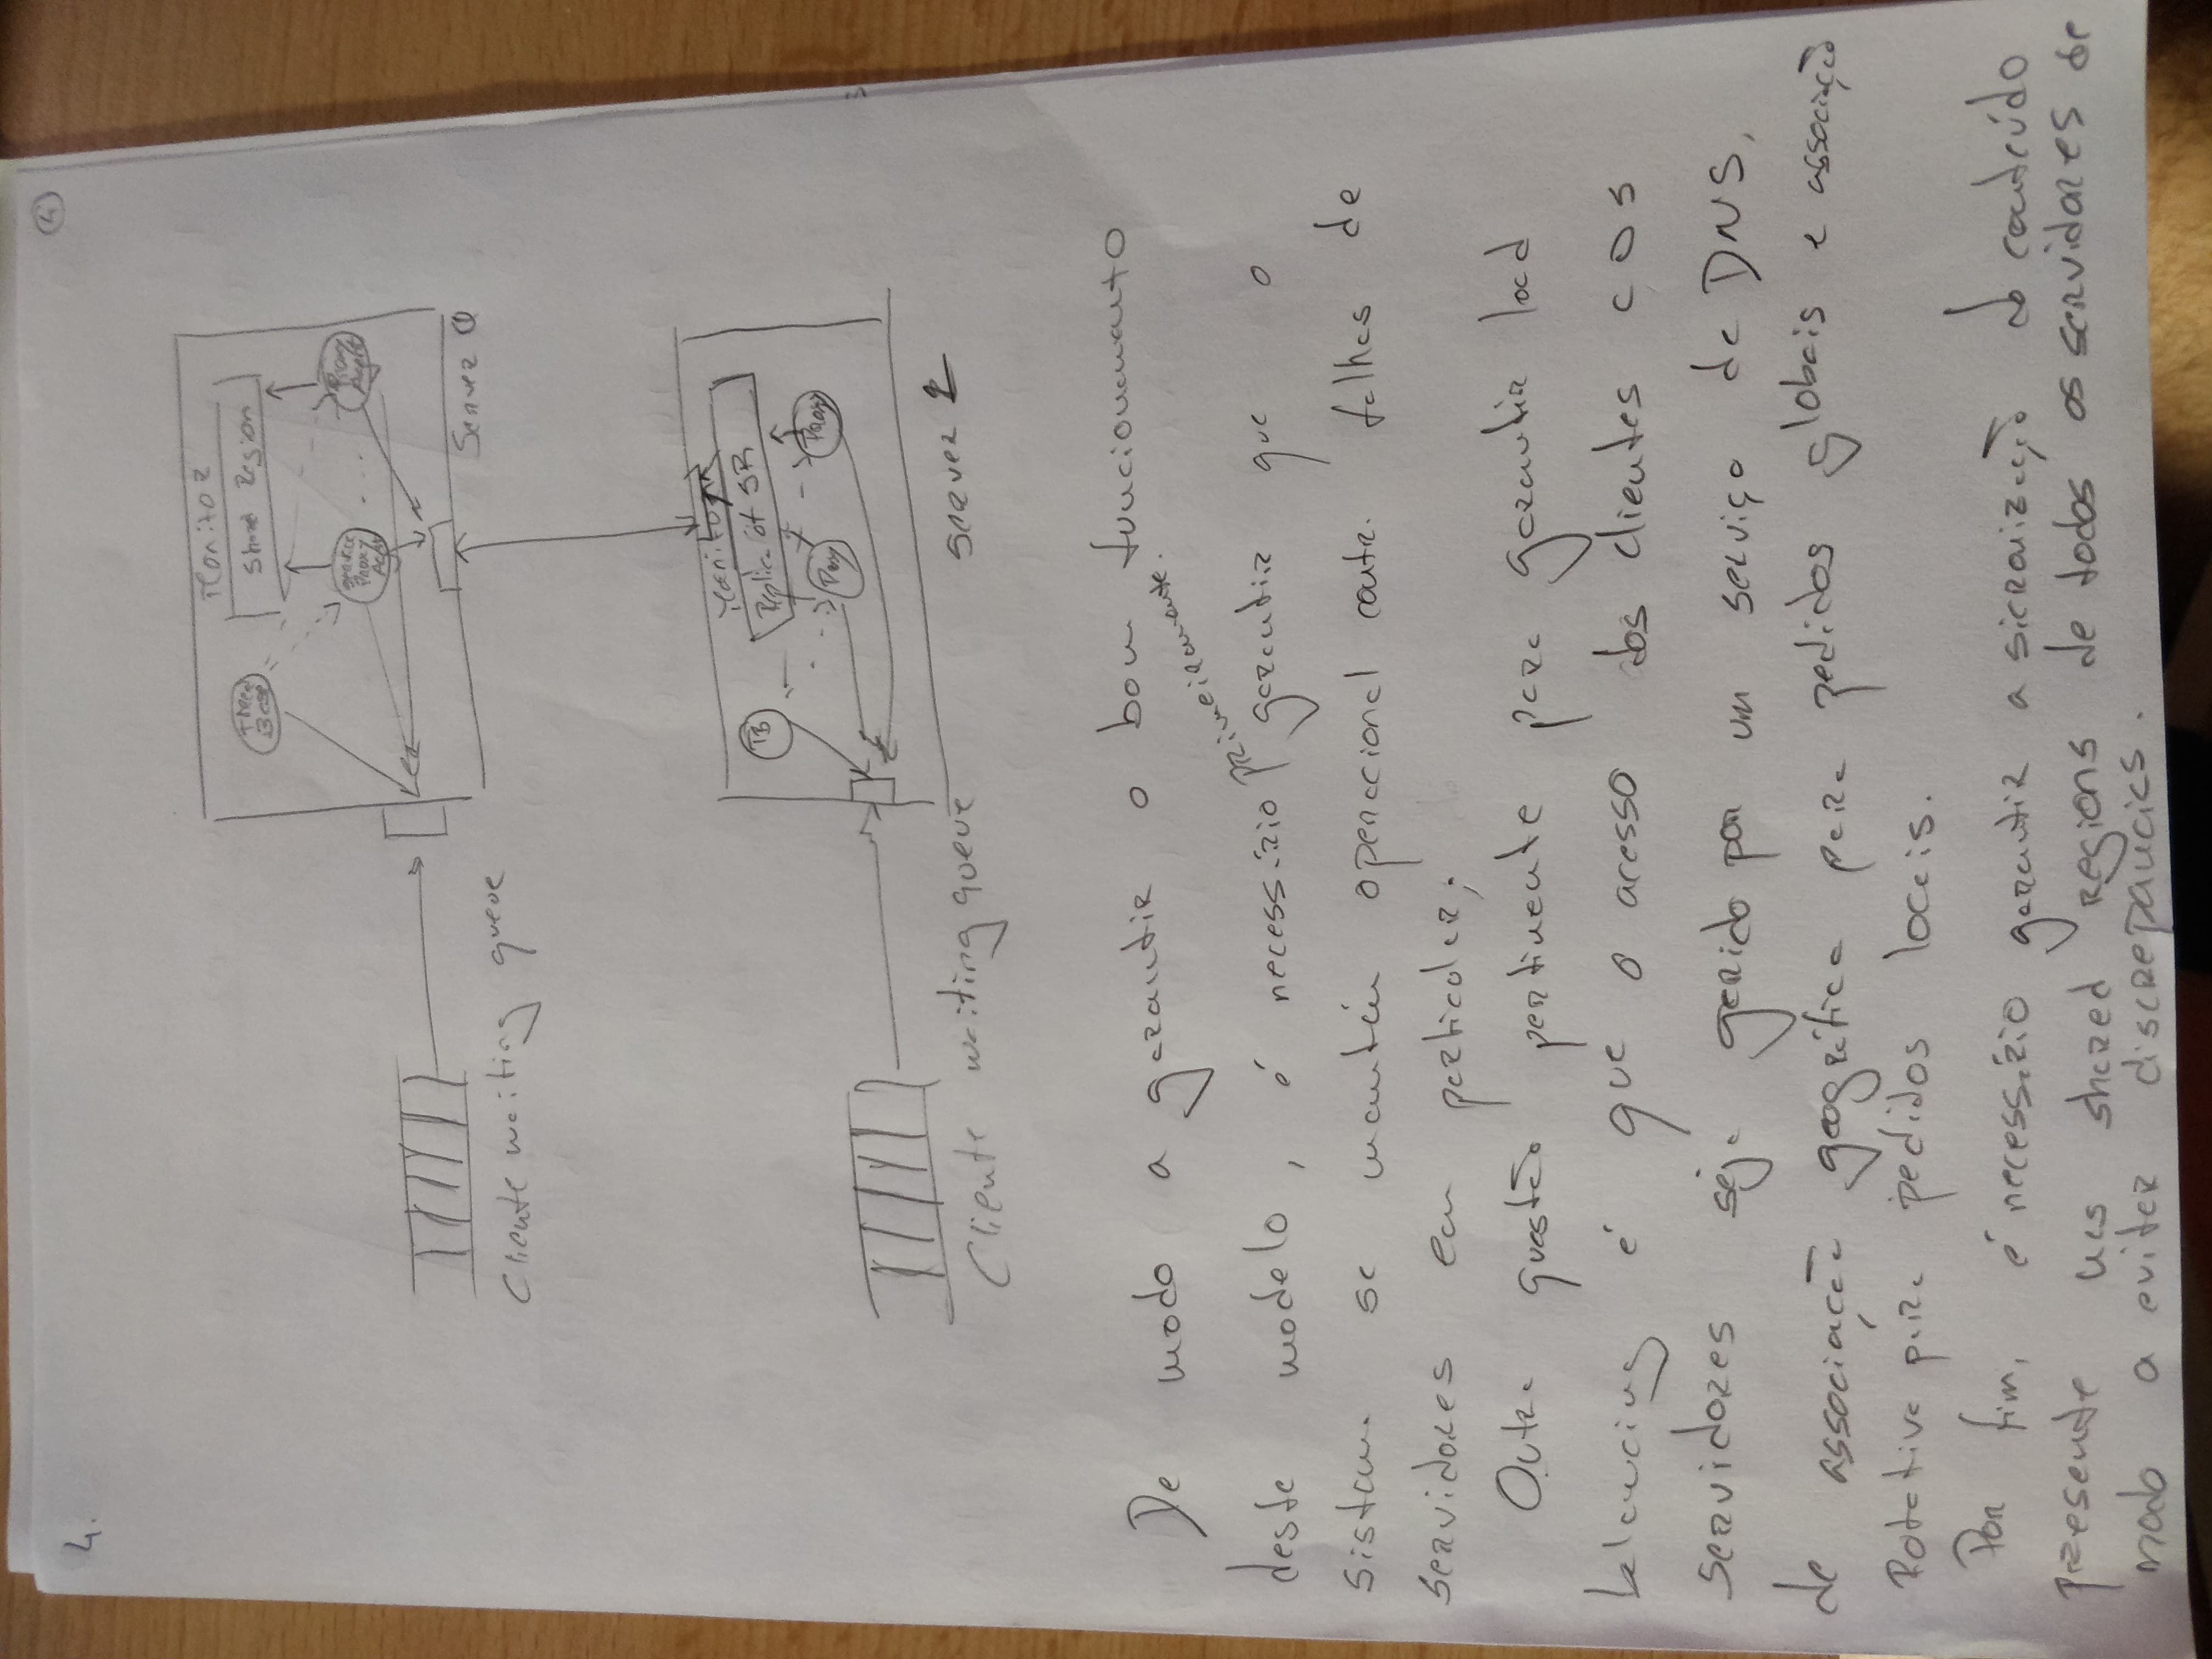 4.
4
Monitor
Shared Region
Thread
Base
Service
Proxy
Agent
Proxy
Agent
Server 1
Cliente waiting queue
Monitor
Replica of SR
TB
Proxy
Proxy
Cliente waiting queue
Server 2
De modo a garantir o bom funcionamento
primeiramente.
deste modelo, é necessário garantir que o
sistema se mantém operacional contra falhas de
servidores em particular;
Outra questão pertinente para garantir load
balancing é que o acesso dos clientes aos
servidores seja gerido por um serviço de DNS,
de associação geográfica para pedidos globais e associação
Rotativa para pedidos locais.
Por fim, é necessário garantir a sicronização do conteúdo
presente nas shared regions de todos os servidores de
modo a evitar discrepancias.